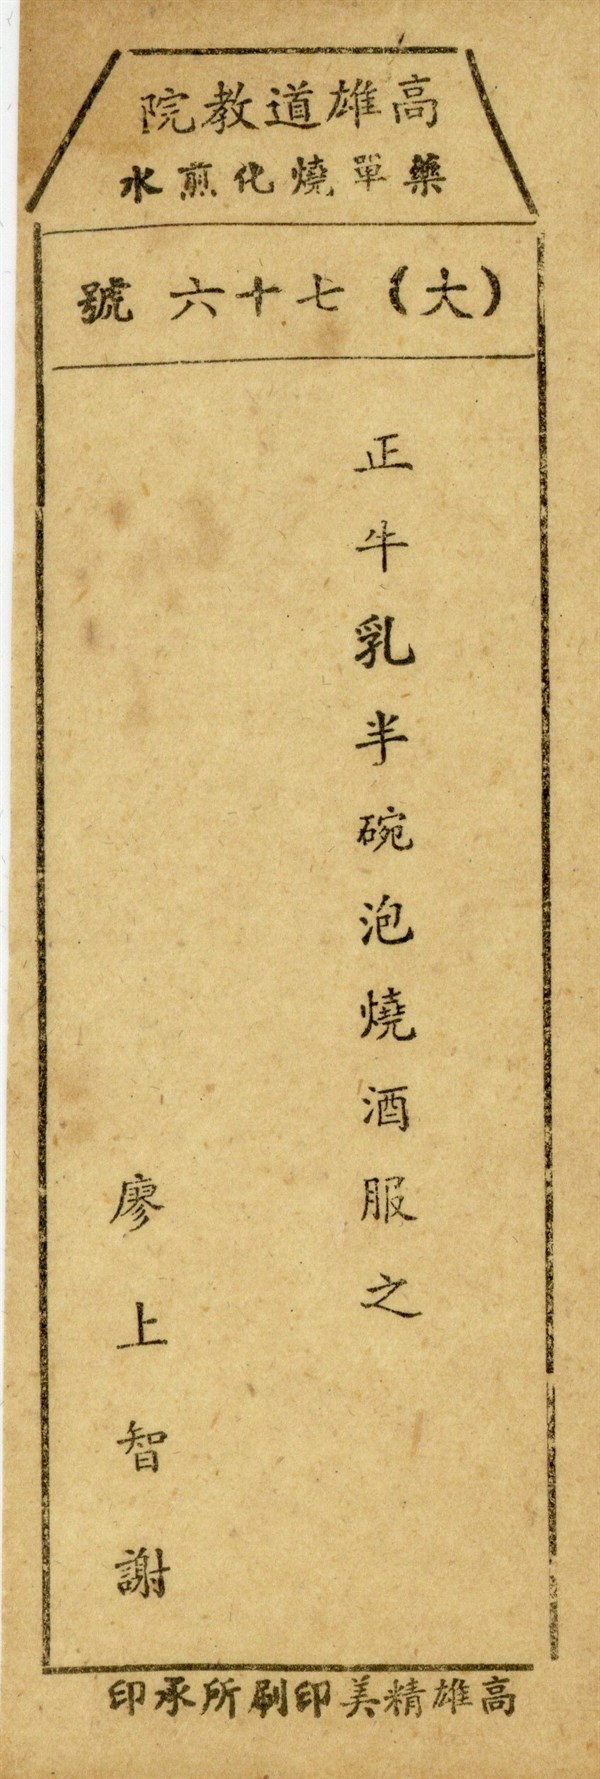 高雄道教院
藥單燒化煎水
(大)七十六號
正牛乳半碗泡燒酒服之
廖上智謝
高雄精美印刷所承印